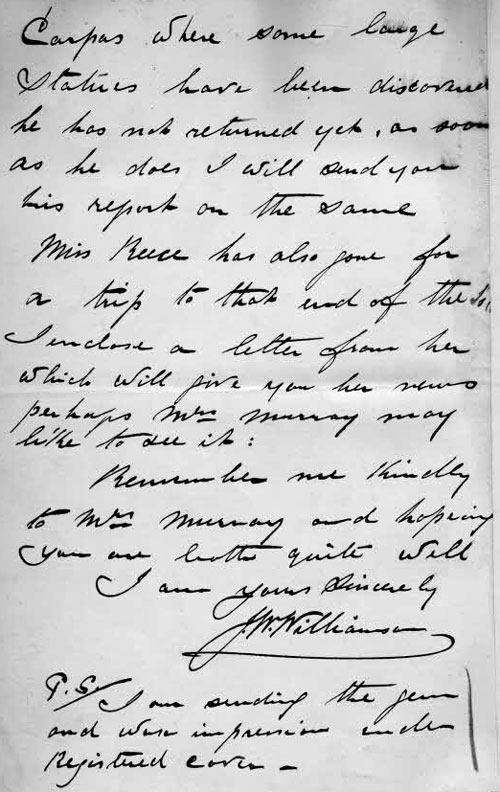 Carpas where some large
Statues have been discovered
he has not returned yet, as soon
as he does I will send you
his report on the same
Miss Reece has also gone for
a trip to that end of the
I enclose a letter from her
which will give you her news
perhaps Mrs Murray may
like to see it:
Remember me kindly
to Mrs Murray and hoping
you are both quite well
I am yours sincerely
J.W. Williamson
P.S/ I am sending the gem
and wax impression under
Registered cover –